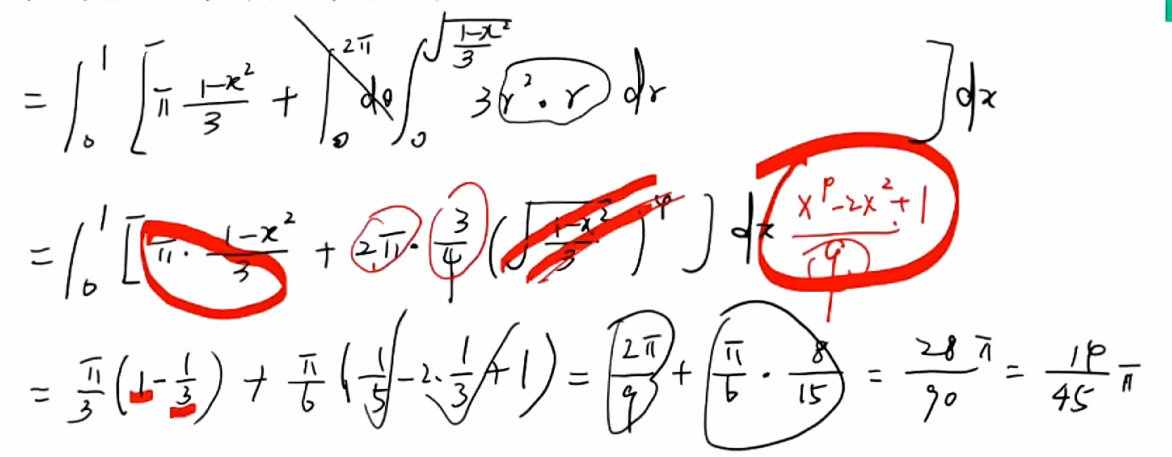 = ∫₀¹ [π (1-x²)/3 + ∫₀^{2π} dθ ∫₀^{√((1-x²)/3)} 3r²·r dr ] dx
= ∫₀¹ [π · (1-x²)/3 + 2π · 3/4 (√((1-x²)/3))⁴ ] dx (x⁴-2x²+1)/9
= π/3 (1 - 1/3) + π/6 (1/5 - 2·1/3 + 1) = 2π/9 + π/6 · 8/15 = 28π/90 = 14/45 π